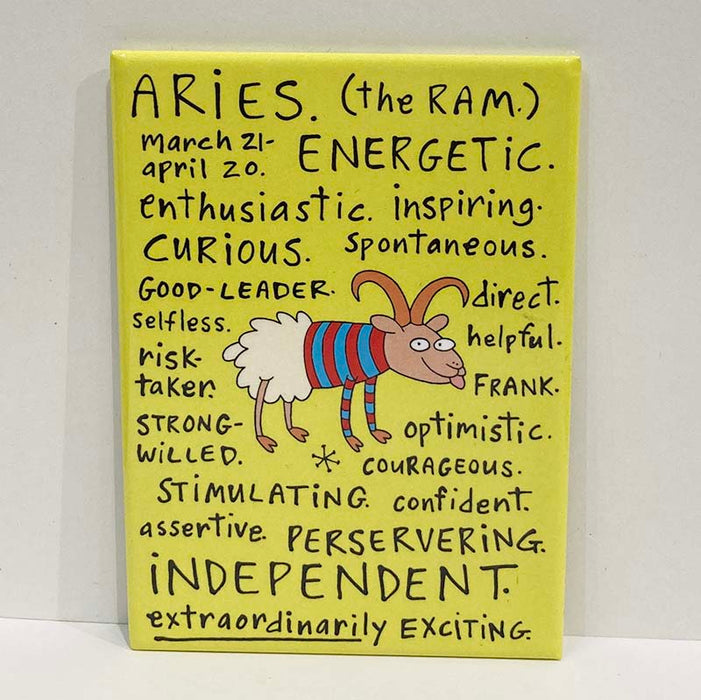 ARiES. (the RAM.)
march 21-
april 20. ENERGETiC.
enthusiastic. inspiring.
CURiOUS. spontaneous.
GOOD-LEADER. direct.
selfless. helpful.
risk-
taker. FRANK.
STRONG-
WiLLED. optimistic.
COURAGEOUS.
STiMULATiNG. confident.
assertive. PERSERVERiNG.
iNDEPENDENT.
extraordinarily EXCiTiNG.